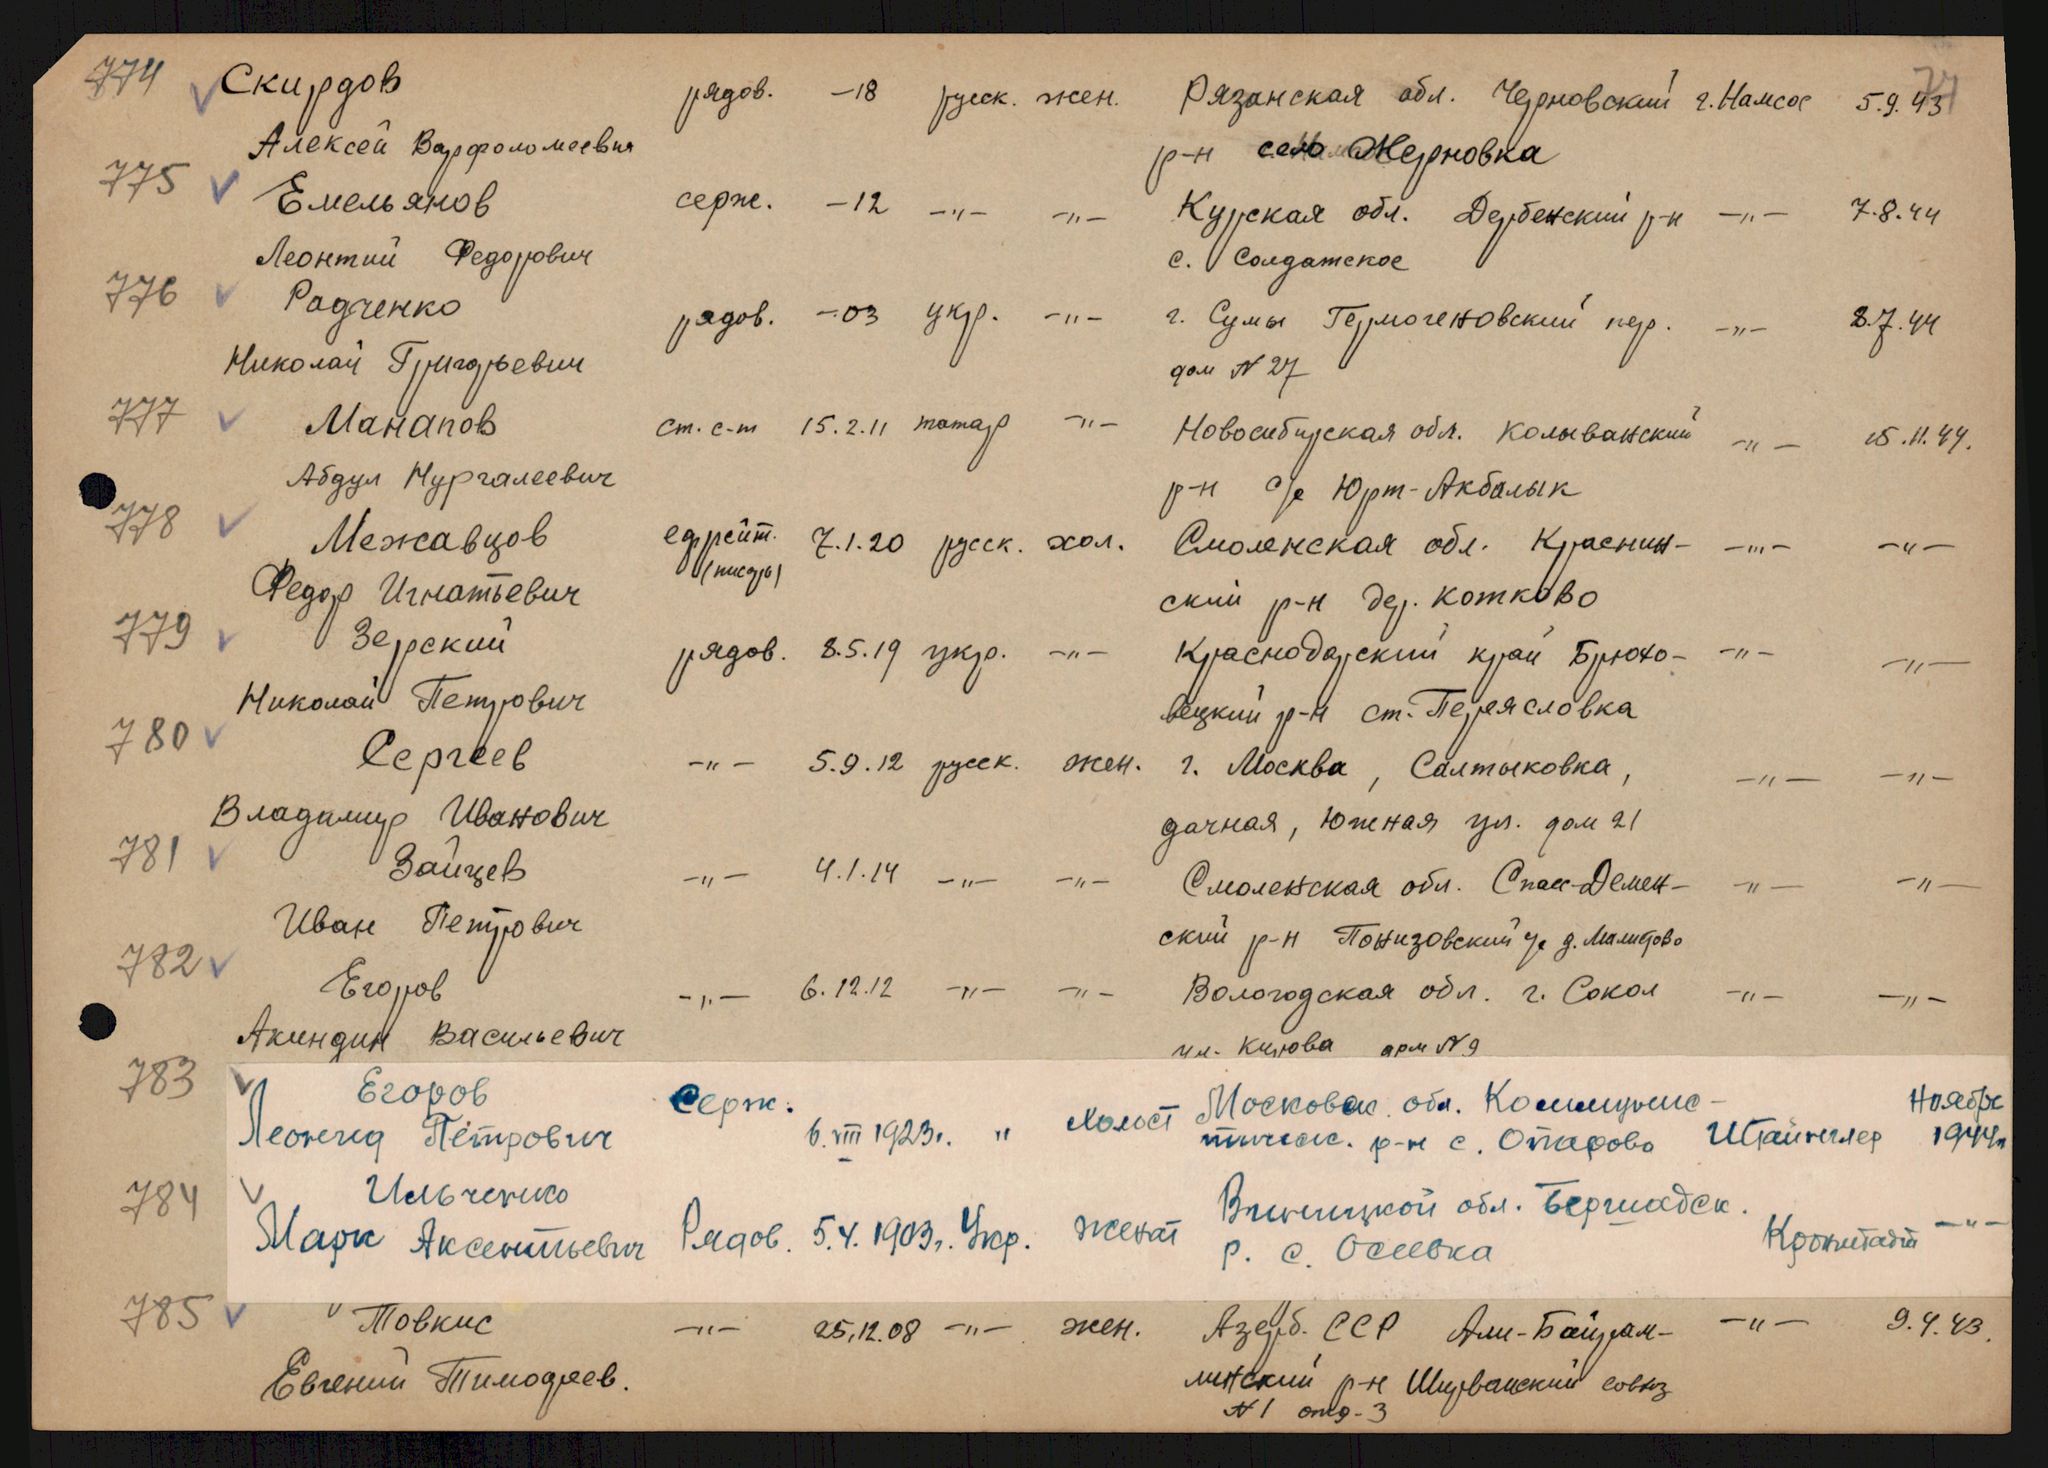 77
774 Скирдов рядов. –18 русск. жен. Рязанская обл. Черновский г. Намсос 5.9.43
Алексей Варфоломеевич р-н село Жерновка
775 Емельянов серж. –12 –"– –"– Курская обл. Дербенский р-н –"– 7.8.44
Леонтий Федорович с. Солдатское
776 Радченко рядов. –03 укр. –"– г. Сумы Гермогеновский пер. –"– 8.7.44
Николай Григорьевич дом N 27
777 Манапов ст. с-т 15.2.11 татар –"– Новосибирская обл. Колыванский –"– 15.11.44.
Абдул Нургалеевич р-н с/с Юрт-Акбалык
778 Межавцов ефрейт. 7.1.20 русск. хол. Смоленская обл. Краснин- –"– –"–
(писарь)
Федор Игнатьевич ский р-н дер. Котково
779 Зерский рядов. 8.5.19 укр. –"– Краснодарский край Брюхо- –"– –"–
Николай Петрович вецкий р-н ст. Переясловка
780 Сергеев –"– 5.9.12 русск. жен. г. Москва, Салтыковка, –"– –"–
Владимир Иванович дачная, Южная ул. дом 21
781 Зайцев –"– 4.1.14 –"– –"– Смоленская обл. Спас-Демен- –"– –"–
Иван Петрович ский р-н Понизовский с/с д.
782 Егоров –"– 6.12.12 –"– –"– Вологодская обл. г. Сокол –"– –"–
Акиндин Васильевич ул. Кирова дом N 9
783 Егоров Серж. Московск. обл. Коммунис- Ноябрь
Леонид Петрович 6.VIII 1923г. " Холост тическ. р-н с. Опарово Штайнглер 1944г
784 Ильченко Винницкой обл. Бершадск.
Марк Аксентьевич Рядов. 5.4.1903г. Укр. женат р. с. Осиевка Кронштадт –"–
785 Товкис –"– 25.12.08 –"– жен. Азерб. ССР Али-Байрам- –"– 9.4.43.
Евгений Тимофеев. линский р-н Ширванский совхз
N 1 отд-3